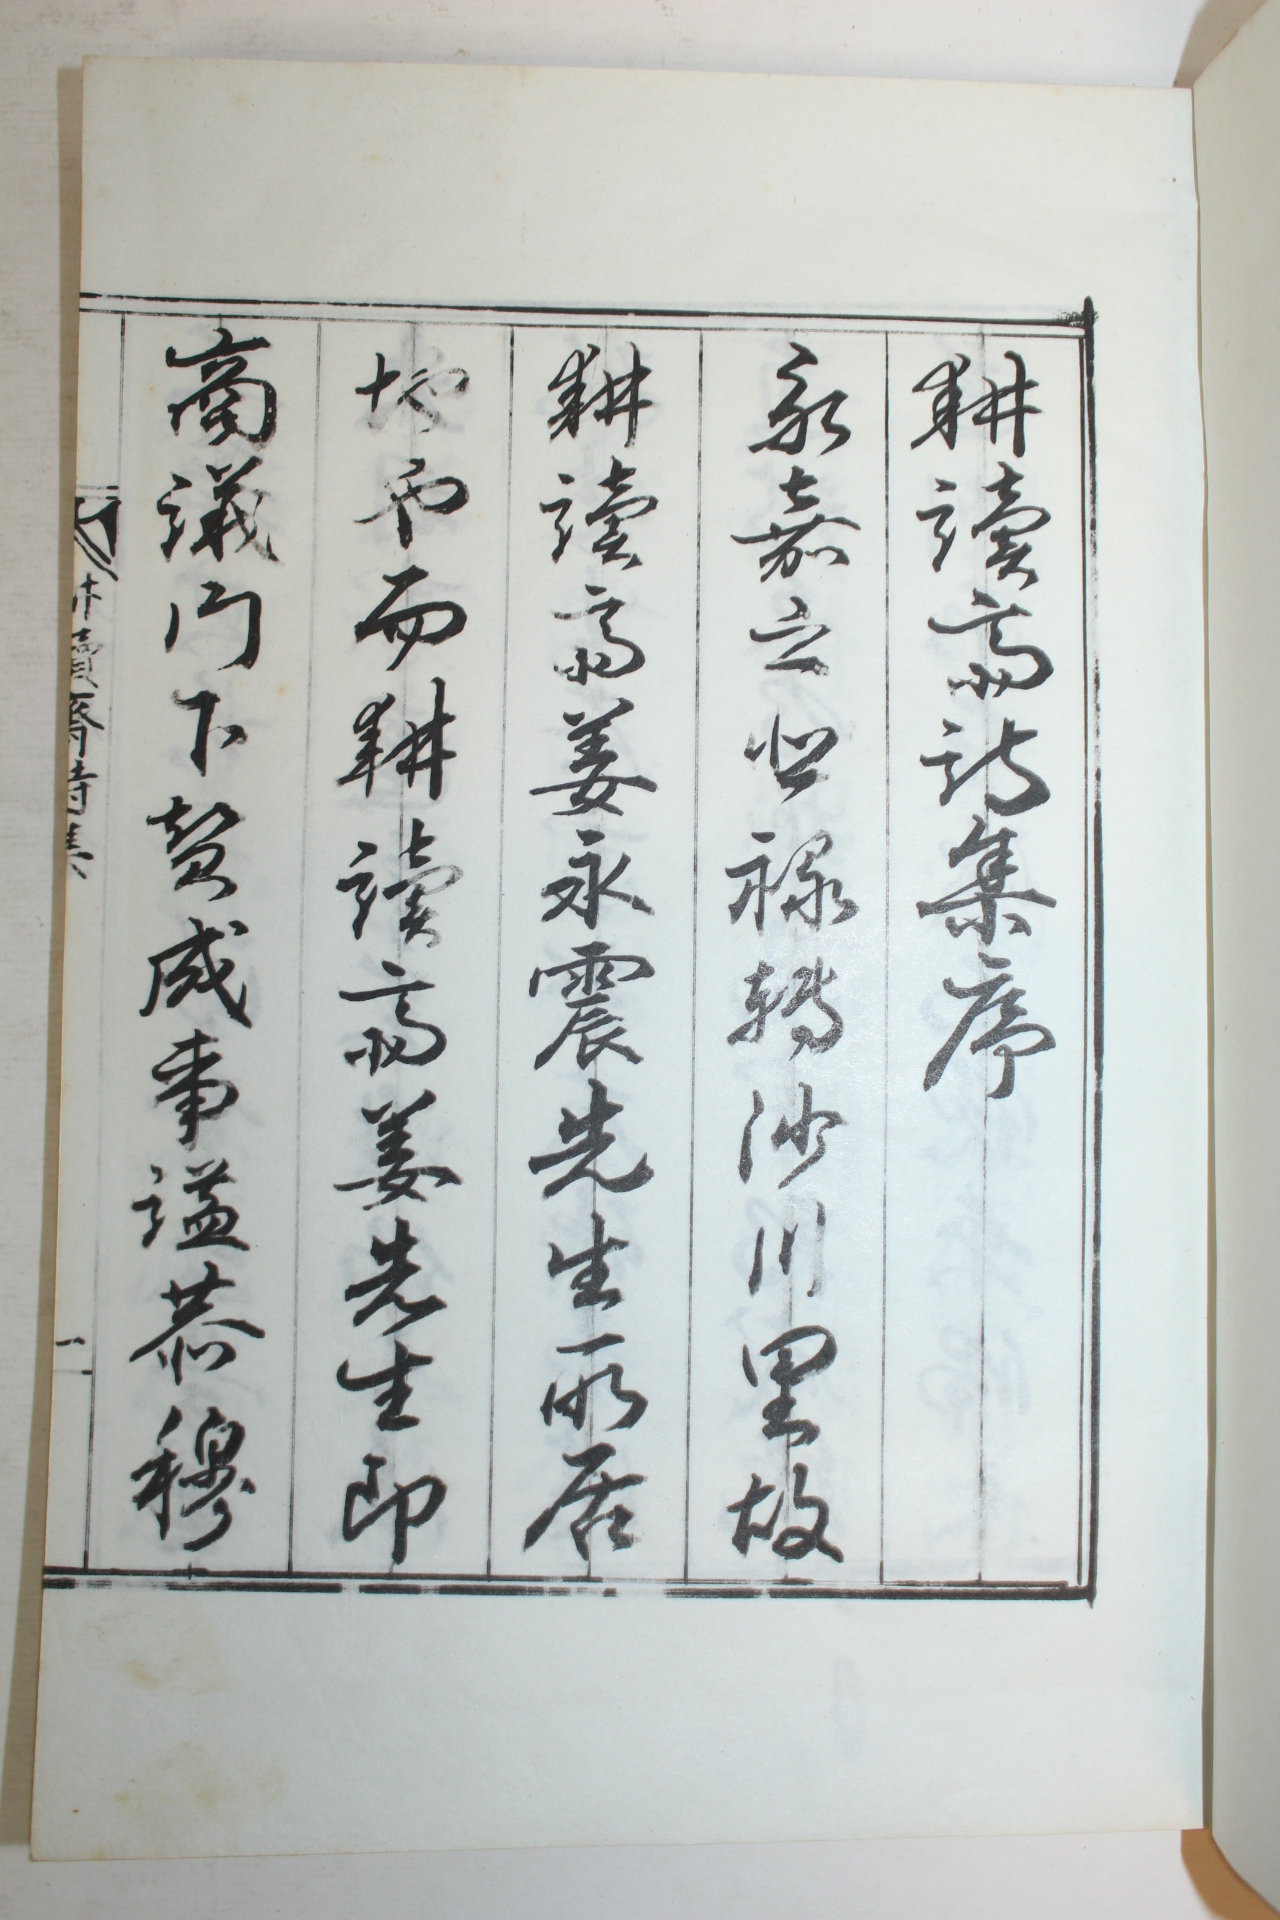 耕讀齋詩集序
永嘉之北祿轉沙川里故
耕讀齋姜永震先生所居
地也而耕讀齋姜先生即
商議門下贊成事謚恭穆
耕讀齋詩集
一